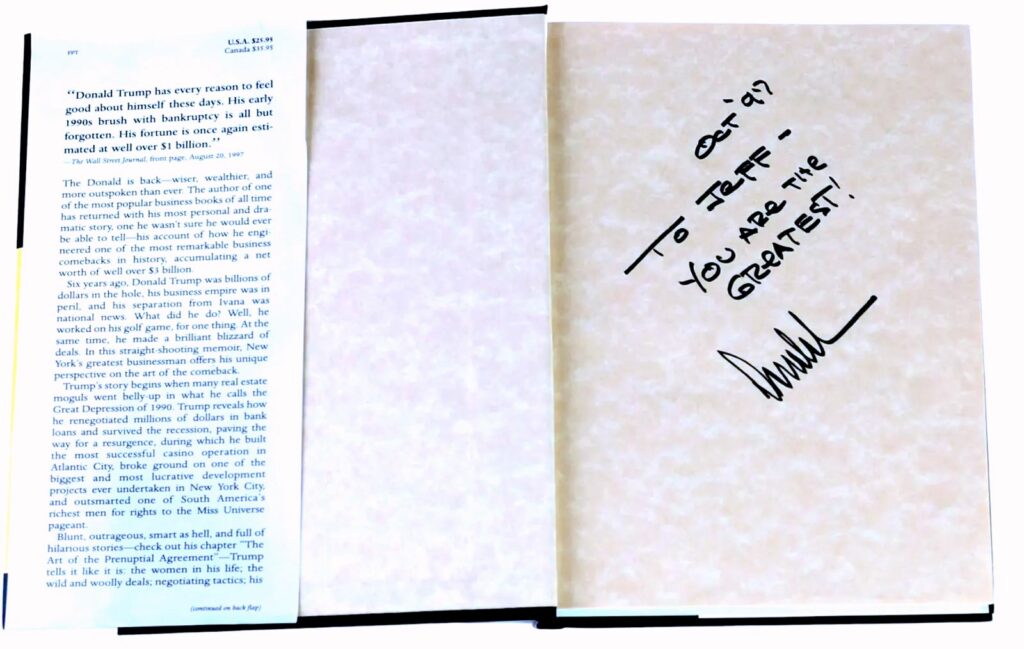 FPT
U.S.A. $25.95
Canada $35.95
“Donald Trump has every reason to feel
good about himself these days. His early
1990s brush with bankruptcy is all but
forgotten. His fortune is once again esti-
mated at well over $1 billion.”
—The Wall Street Journal, front page, August 20, 1997
The Donald is back—wiser, wealthier, and
more outspoken than ever. The author of one
of the most popular business books of all time
has returned with his most personal and dra-
matic story, one he wasn't sure he would ever
be able to tell—his account of how he engi-
neered one of the most remarkable business
comebacks in history, accumulating a net
worth of well over $3 billion.
Six years ago, Donald Trump was billions of
dollars in the hole, his business empire was in
peril, and his separation from Ivana was
national news. What did he do? Well, he
worked on his golf game, for one thing. At the
same time, he made a brilliant blizzard of
deals. In this straight-shooting memoir, New
York's greatest businessman offers his unique
perspective on the art of the comeback.
Trump's story begins when many real estate
moguls went belly-up in what he calls the
Great Depression of 1990. Trump reveals how
he renegotiated millions of dollars in bank
loans and survived the recession, paving the
way for a resurgence, during which he built
the most successful casino operation in
Atlantic City, broke ground on one of the
biggest and most lucrative development
projects ever undertaken in New York City,
and outsmarted one of South America's
richest men for rights to the Miss Universe
pageant.
Blunt, outrageous, smart as hell, and full of
hilarious stories—check out his chapter "The
Art of the Prenuptial Agreement"—Trump
tells it like it is: the women in his life; the
wild and woolly deals; negotiating tactics; his
(continued on back flap)
OCT '97
TO JEFF -
YOU ARE THE
GREATEST!
Donald